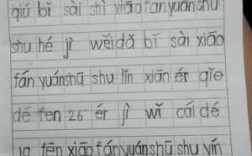 qiú bǐ sài shì xiǎo fān yuán shū
shu hé jì wěi dǎ bǐ sài xiāo
fán yuánshū shu lǐn xiān ér qiě
dé fen 26 ér jì wǐ cái dé
10 fēn xiǎo fányuánshū shu yín